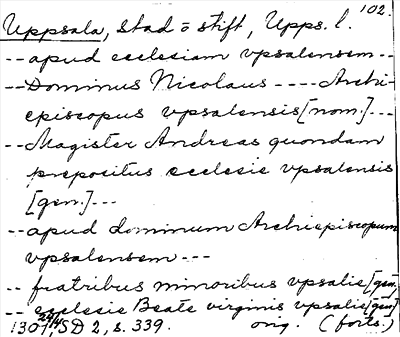 102.
Uppsala, stad o stift, Upps. l.
-- apud ecclesiam vpsalensem --
-- Dominus Nicolaus ---- Archi-
episcopus vpsalensis [nom.] ---
-- Magister Andreas quondam
prepositus ecclesie vpsalensis
[gen.] ---
-- apud dominum Archiepiscopum
vpsalensem ---
-- fratribus minoribus vpsalie [gen.]
-- ecclesie Beate virginis vpsalie [gen.]
1301 24/4, SD 2, s. 339. orig. (forts.)